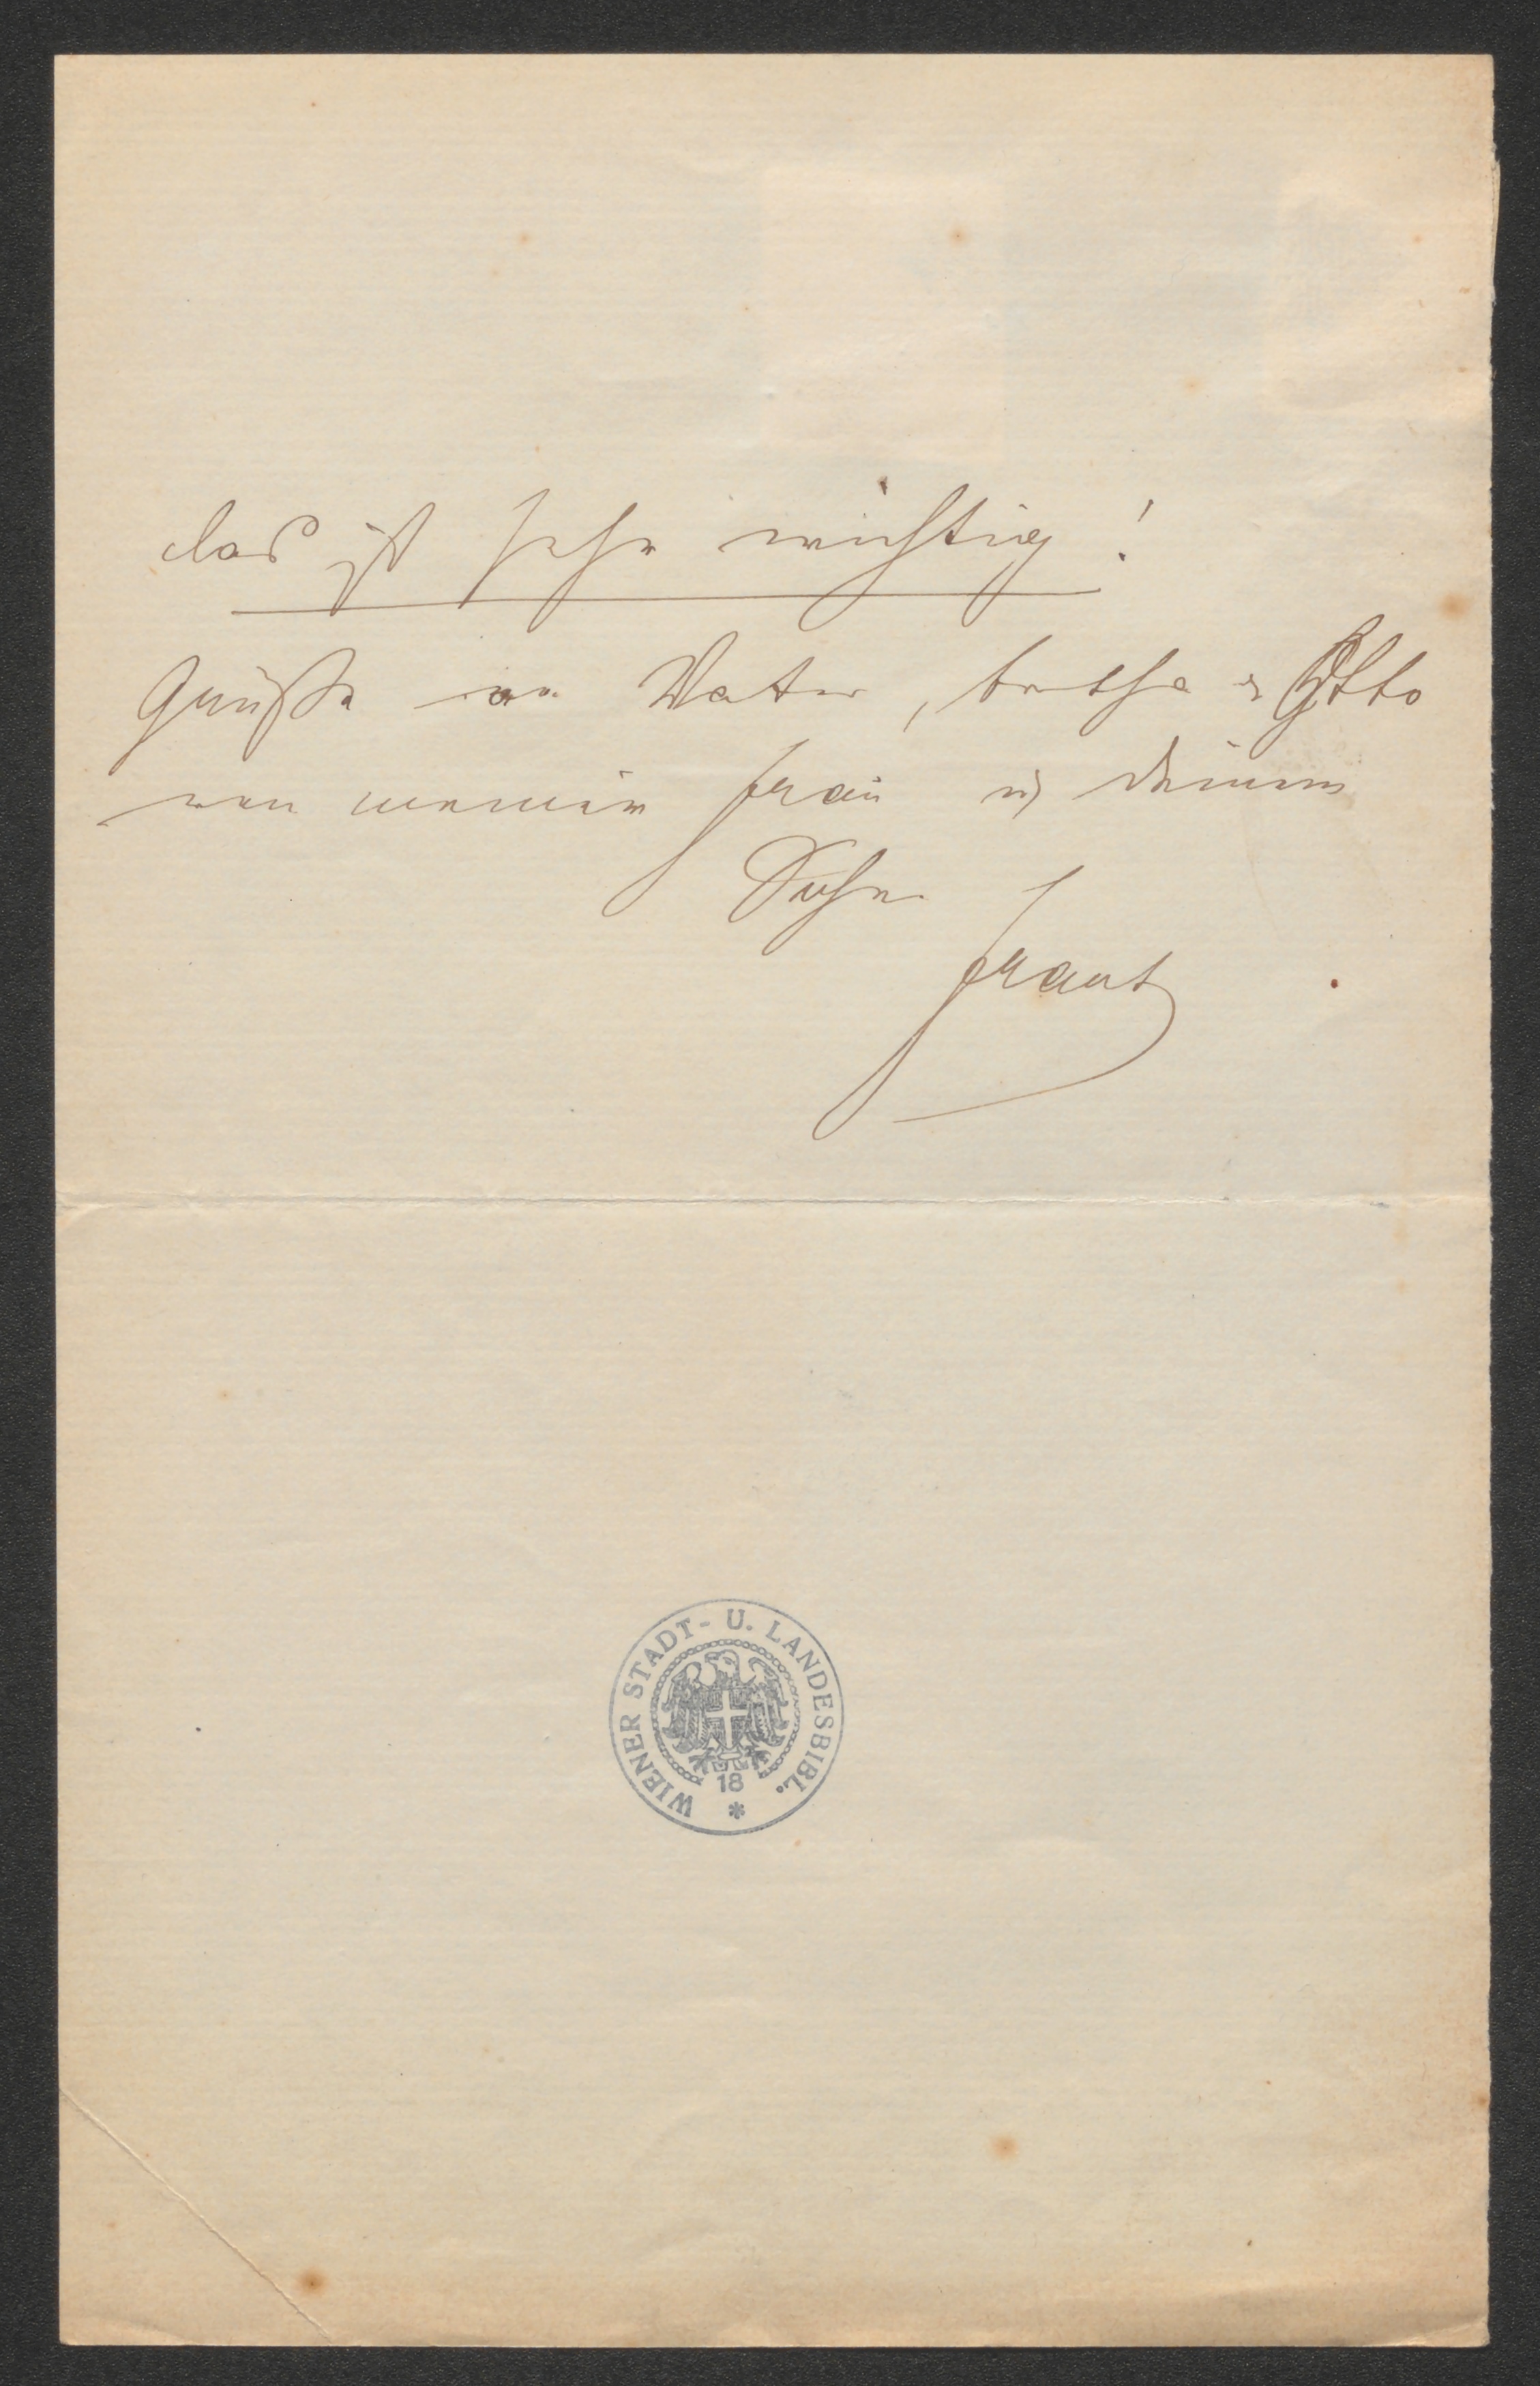 das ist sehr wichtig!
Grüße an Vater, & Otto
von meiner Frau u deinem
Sohn
Franz
WIENER STADT- U. LANDESBIBL.
18
*